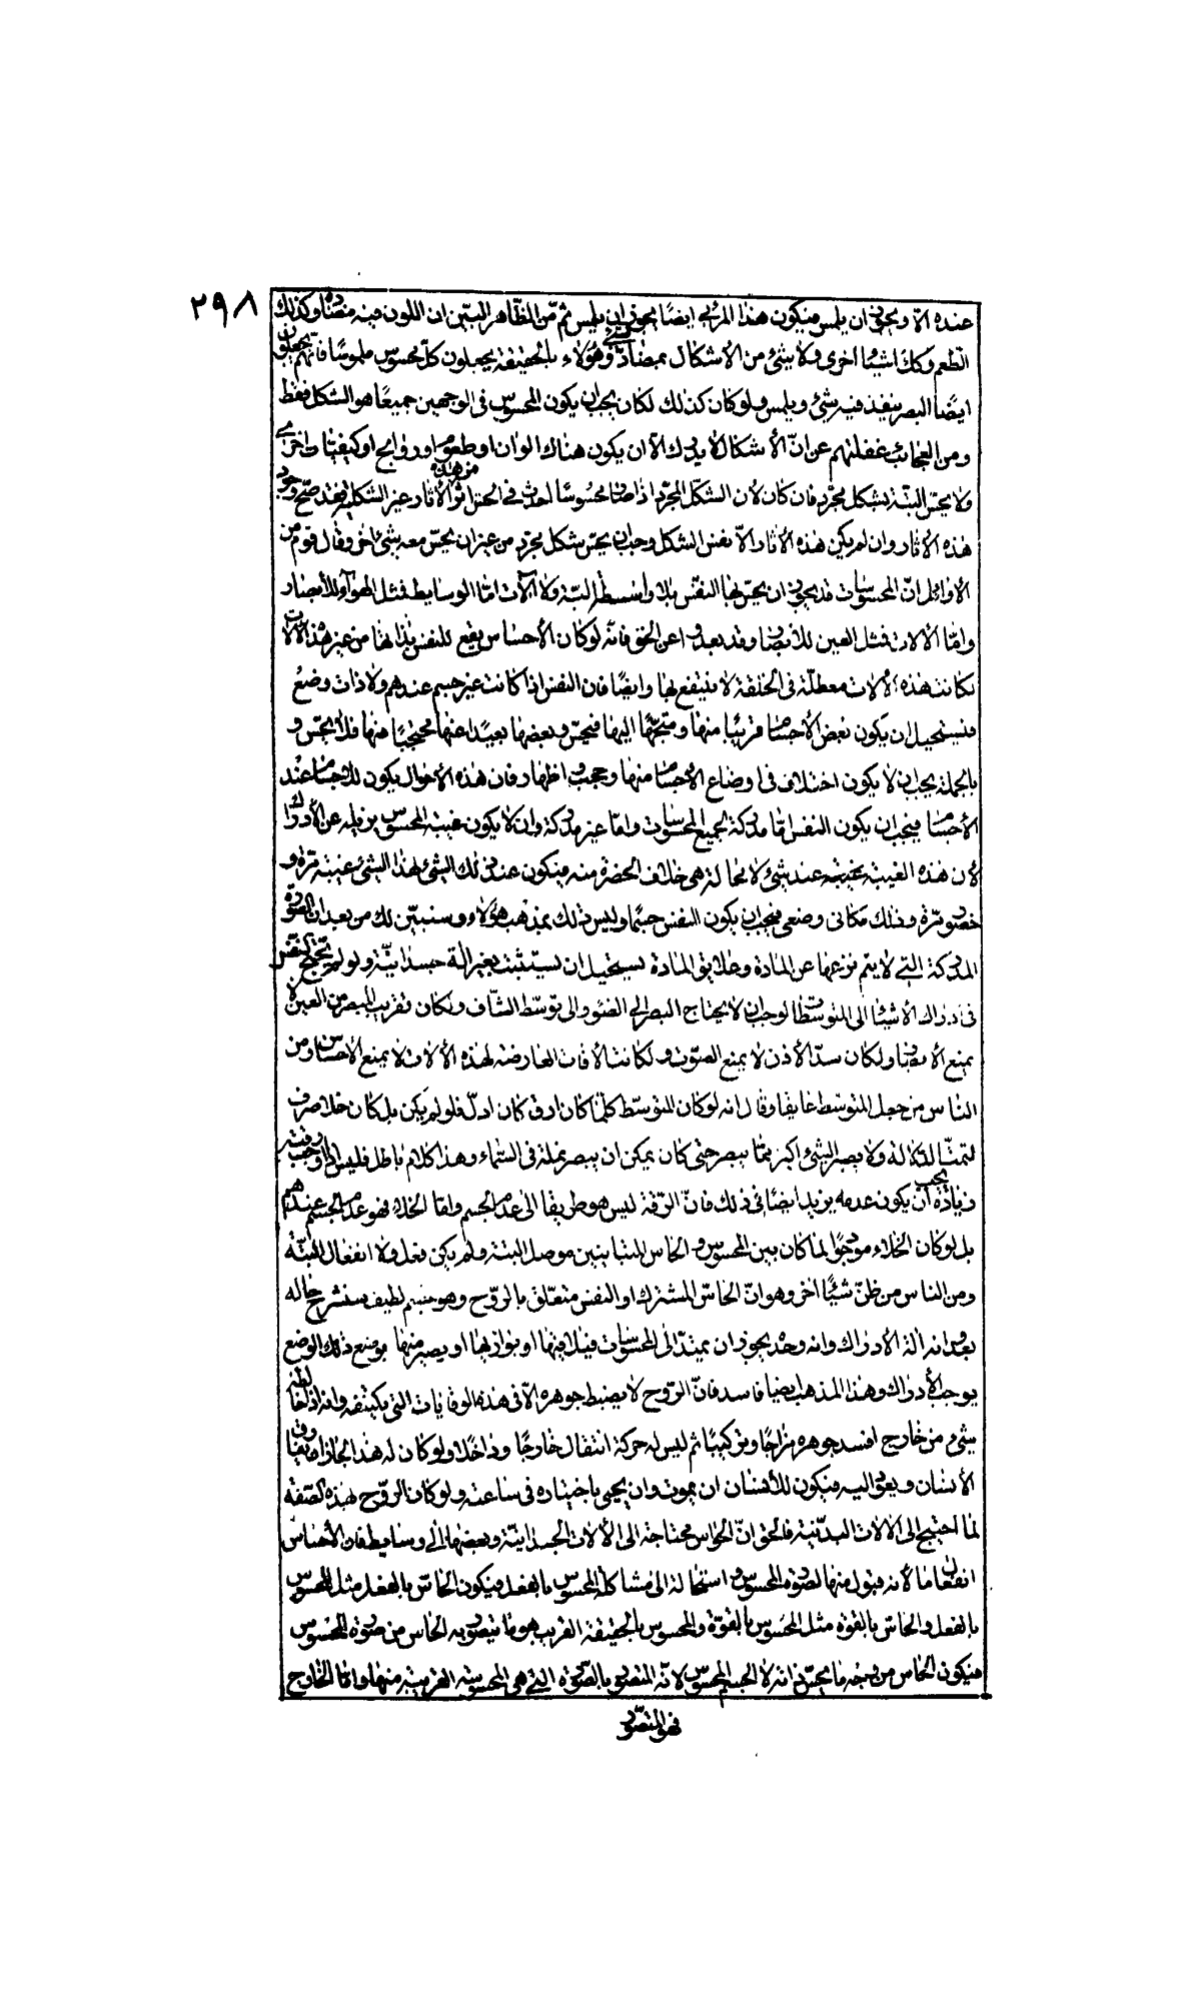 ٢٩٨
عنده الا ويجوز ان يلمس فيكون هذا المرئى ايضا يجوز ان يلمس ثم من الظاهر البيّن ان اللون فيه مضادة وكذلك
الطعم وكك اشياء اخرى ولا شئ من الاشكال بمضاد لشئ وهؤلاء بالحقيقة يجعلون كل محسوس ملموسا فانهم يجعلون
ايضا البصر ينفذ فيه شئ ويلمس ولو كان كذلك لكان يجب ان يكون المحسوس فى الوجهين جميعا هو الشكل فقط
ومن العجائب غفلتهم عن ان الأشكال لا يدرك الا ان يكون هناك الوان او طعوم او روايح او كيفيات اخرى
ولا يحس البتة بشكل مجرد فان كان لان الشكل المجرد اذا صار محسوسا احدث فى الحس اثرا من هذه الاثار غير الشكلية فقد صح وجود
هذه الاثار وان لم يكن هذه الاثار الا نفس الشكل وجب ان يحس شكل مجرد من غير ان يحس معه شئ اخر وقال قوم من
الاوائل ان المحسوسات قد يجوز ان يحس بها النفس بلا واسطة البتة ولا آلات اما الوسايط فمثل الهواء للأبصار
واما الألات فمثل العين للأبصار وقد بعدوا عن الحق فانه لو كان الأحساس يقع للنفس بذاتها من غير هذه الالات
لكانت هذه الألات معطلة فى الخلقة لا ينتفع بها وايضا فان النفس اذا كانت غير جسم عندهم ولا ذات وضع
فيستحيل ان يكون بعض الأجسام قريبا منها ومتجها اليها فيحس وبعضها بعيدا عنها محتجبا منها فلا يحس و
بالجملة يجب ان لا يكون اختلاف فى اوضاع الاجسام منها وحجب واظهار فان هذه الأحوال يكون للاجسام عند
الأجسام فيجب ان يكون النفس اما مدركة لجميع المحسوسات واما غير مدركة وان لا يكون غيبة المحسوس يزيله عن الأدراك
لأن هذه الغيبة غيبة عند شئ لا محالة هى خلاف الحضرة منه فيكون عند ذلك الشئ لهذا الشئ غيبة مرة و
حضور مرة وذلك مكانى وضعى فيجب ان يكون النفس جسما وليس ذلك بمذهب هؤلاء وسنبين لك من بعد ان الصورة
المدركة التى لا يتم نزعها عن المادة وعلايق المادة يستحيل ان يستثبت بغير الة جسدانية ولو لم يحتج النفس
فى ادراك الأشياء الى المتوسطات لوجب ان لا يحتاج البصر الى الضوء والى توسط الشاف ولكان تقريب المبصر من العين لا
يمنع الأبصار ولكان سد الأذن لا يمنع الصوت ولكانت الأفات العارضة لهذه الألات لا يمنع الاحساس ومن
الناس من جعل المتوسط عايقا وقال انه لو كان المتوسط كلما كان ارق كان ادل فلو لم يكن بل كان خلاء صرف
لتمت الدلالة ولأبصر الشئ اكبر مما يبصر حتى كان يمكن ان يبصر نملة فى السماء وهذا كلام باطل فليس اذا اوجب رقته
زيادة يجب ان يكون عدمه يزيد ايضا فى ذلك فان الرقة ليس هو طريقا الى عدم الجسم واما الخلاء فهو عدم الجسم عندهم
بل لو كان الخلاء موجودا لما كان بين المحسوس والحاس المتباينين موصل البتة ولم يكن فعل ولا انفعال البتة
ومن الناس من ظن شيئا اخر وهو ان الحاس المشترك او النفس متعلق بالروح وهو جسم لطيف سنشرح حاله
بعد انه الة الأدراك وانه وحده يجوز ان يمتد الى المحسوسات فيلاقيها او يوازيها او يصير منها بوضع ذلك الوضع
يوجب الأدراك وهذا المذهب ايضا فاسد فان الروح لا يضبط جوهره الا فى هذه الوقايات التى يكتنفه وانه اذا خالطه
شئ من خارج افسد جوهره مزاجا وتركيبا ثم ليس له حركة انتقال خارجا وداخلا ولو كان له هذا لجاز ان يفارق
الأنسان ويعود اليه فيكون للأنسان ان يموت وان يحيى باختياره فى ساعته ولو كان الروح بهذه الصفة
لما احتيج الى الالات البدنية فالحق ان الحواس محتاجة الى الألات الجسدانية وبعضها الى وسايط فان الأحساس
انفعال ما لأنه قبول منها لصورة المحسوس واستحالة الى مشاكلة المحسوس بالفعل فيكون الحاس بالفعل مثل المحسوس
بالفعل والحاس بالقوة مثل المحسوس بالقوة والمحسوس بالحقيقة القريب هو ما يتصور به الحاس من صورة المحسوس
فيكون الحاس من وجه ما يحس ذاته لا الجسم المحسوس لانه المتصور بالصورة التى هى المحسوسة القريبة منها واما الخارج
فهو المتصور